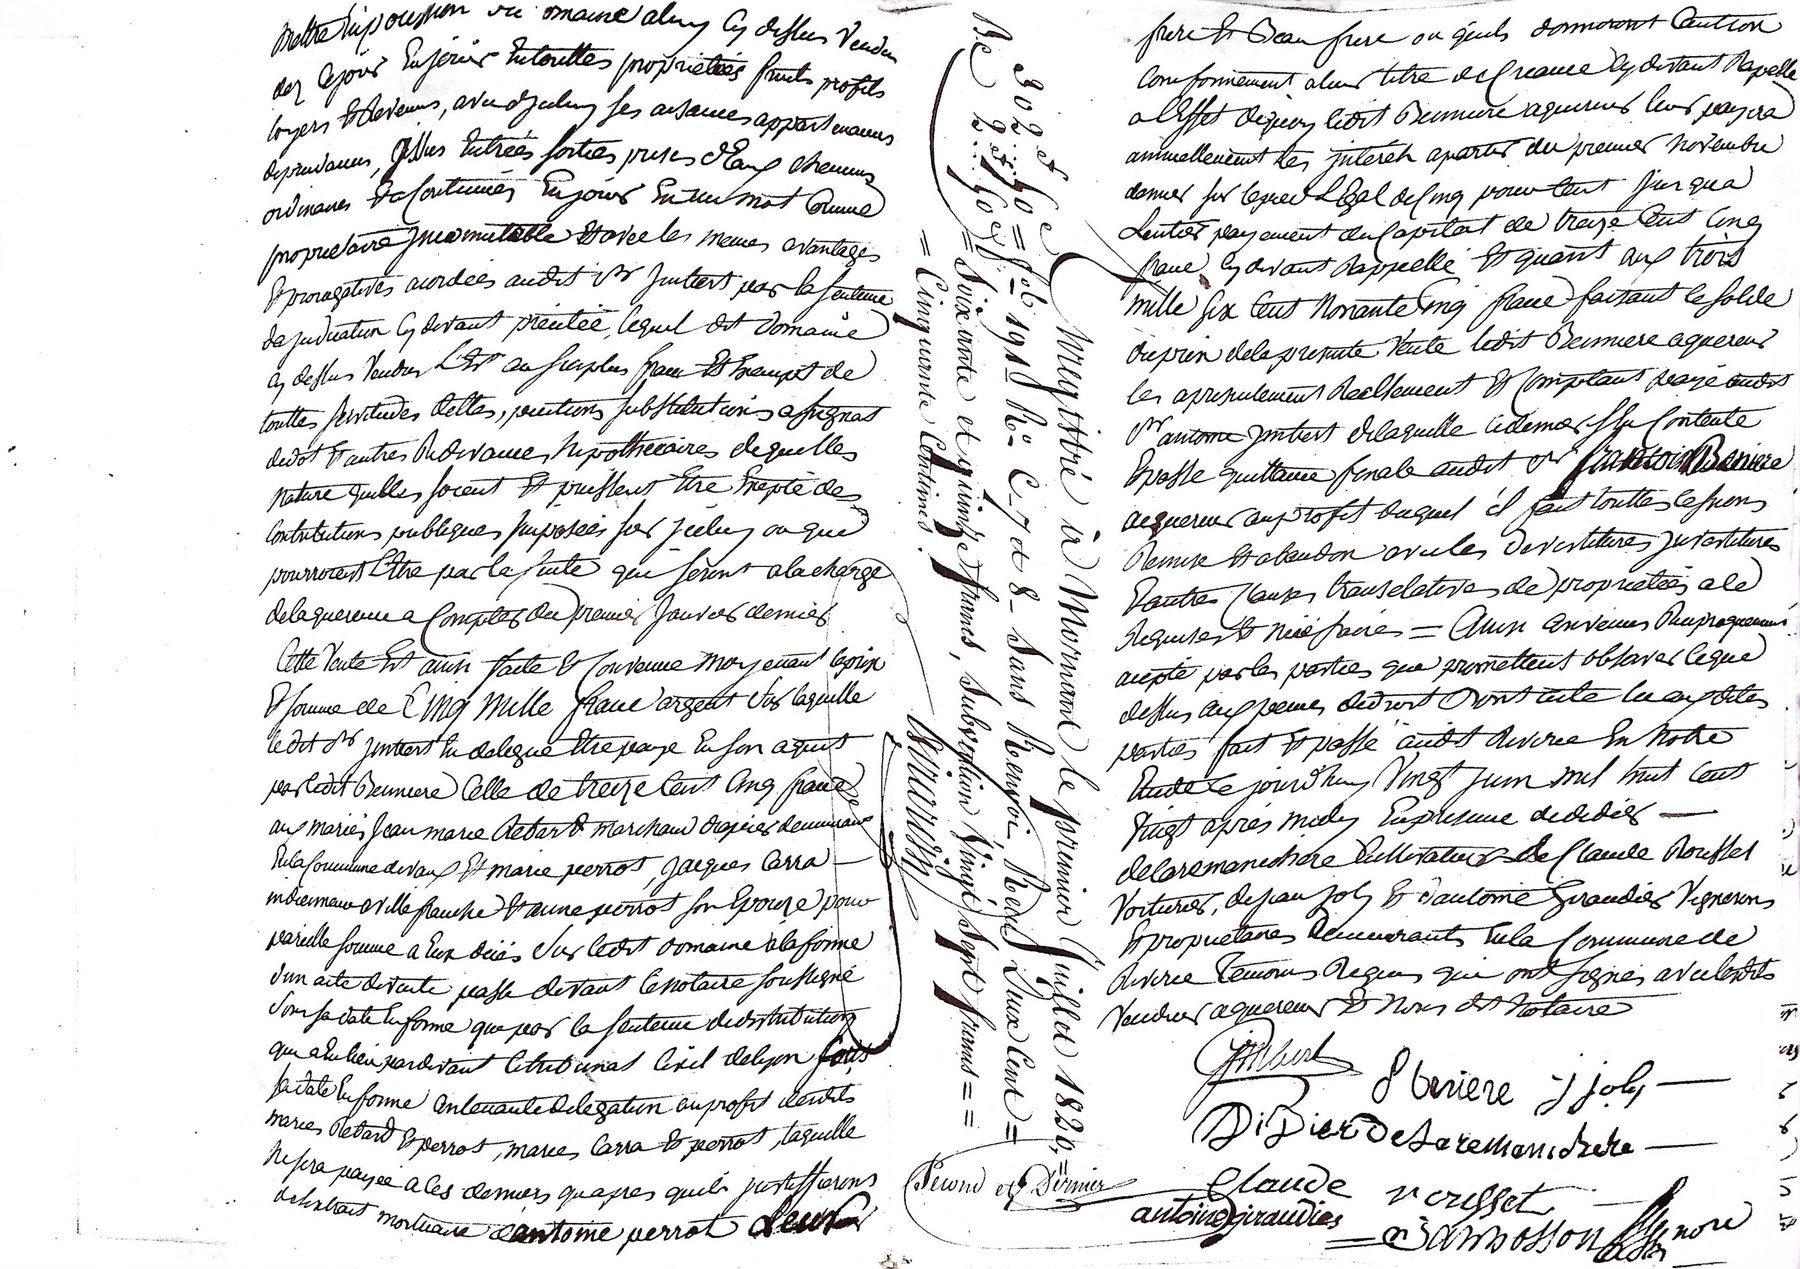 mettre en possession du domaine a luy cy dessus vendu
dez ce jour en jouir en touttes proprietés fruits profits
loyers et revenus, avec d'yceluy ses aisances appartenances
dependances, issues entrées sorties prises d'eaux chemins
ordinaires et a Coutumés en jouir en un mot Comme
proprietaire Incomutable et avec les memes avantages
et prerogatives acordées audit Sr jmbert par la sentence
dajudication cy devant précitée, lequel dit Domaine
cy dessus vendu Est au surplus franc et exempt de
touttes servitudes dettes, pentions substitutions assignat
de dot et autres Redevances hipothecaires de quelles
nature quelles soient et puissent Etre Exepté des
Contributions publiques Imposées sur jceluy ou que
pourroient l'Etre par la suite qui seront a la charge
de laquereur a Compter du premier janvier dernier
Cette vente Est ainsi faite et Convenue moyenant le prix
et somme de Cinq mille franc argent sur laquelle
le dit Sr jmbert En delegue Etre payé En son aquit
par ledit Bunniere Celle de treize Cent Cinq franc
aux mariés jean marie Retard marchand drapier demeurant
En la Commune de vaux Et marie perrot, jacques Carra
a ville franche Et anne perrot son Epouze pour
pareille somme a Eux dues sur ledit domaine a la forme
d'un acte de vente passé devant le notaire soussigné
sous sa date En forme que par la sentence de distribution
qui a Eu lieu par devant le tribunal Civil de lyon sous
sa date En forme Contenante delegation au profit desdits
maries Retard Et perrot, maries Carra Et perrot, laquelle
ne sera payée a Ces derniers quapres quils justiffierons
de lextrait mortuaire d'antoine perrot leur
R.e 302 f 50 c
2.e 2 f 50 c
Enregistré à Mornant le premier Juillet 1820, =
fol. 191 Ro C. 7 et 8 – Sans Renvoi, Reçu Deux Cent =
= Soixante et quinze francs, Subvention Vingt Sept francs = =
= Cinquante Centimes.
Second et Dernier
frere Et Beau frere ou quils donneront Caution
Conformement a leur titre de Creance cy devant Rapellé
a l'Effet de quoy ledit Bunniere aquereur leur payera
annuellement les jnterets a partir du premier novembre
dernier sur le pied Légal de Cinq pour Cent jusqua
Lentier payement du Capital de treize Cent Cinq
franc cy devant Rappellé Et quant aux trois
mille six Cent Nonante Cinq franc faisant le solde
du prix de la presente vente ledit Bunniere aquereur
les a presentement Reellement Et Comptant payé audit
Sr antoine jmbert de laquelle il demeure Contente
Et passe quittance finale audit Sr francois Beniere
aquereur au profit duquel il fait touttes Cessions
Remise Et abandon avec les devestitures jnvestitures
Et autres Clauses translatives de propriétés a Ce
Requises Et Necessaires = Ainsi Convenu Reciproquement
acepté par les parties que promettent observer Ceque
dessus aux peines de droit Dont acte lu aux dites
parties fait Et passé audit Riverie En Notre
Etude Ce jourd'huy Vingt juin mil huit Cent
Vingt après midy En presence de didier —
delaremanichere Cultivateur de Claude Rousset
Voiturier, de jean joly Et d'antoine Giraudier Vignerons
Et proprietaires Demeurants En la Commune de
Riverie temoins Requis qui ont signés avec lesdits
vendeur aquereur Et Nous dit Notaire
jmbert
f beniere j joly —
DiDier De Laremanichere —
Claude rousset —
antoine giraudier
= Bambosson